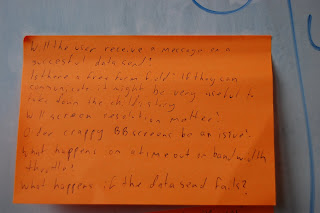 Will the user receive a message on a
successful data send?
Is there a free form field? If they can
communicate it might be very useful to
down the child's story
Will screen resolution matter?
crappy BB screens be an issue?
What happens on a timeout or bandwidth
throttle?
What happens if the data send fails?